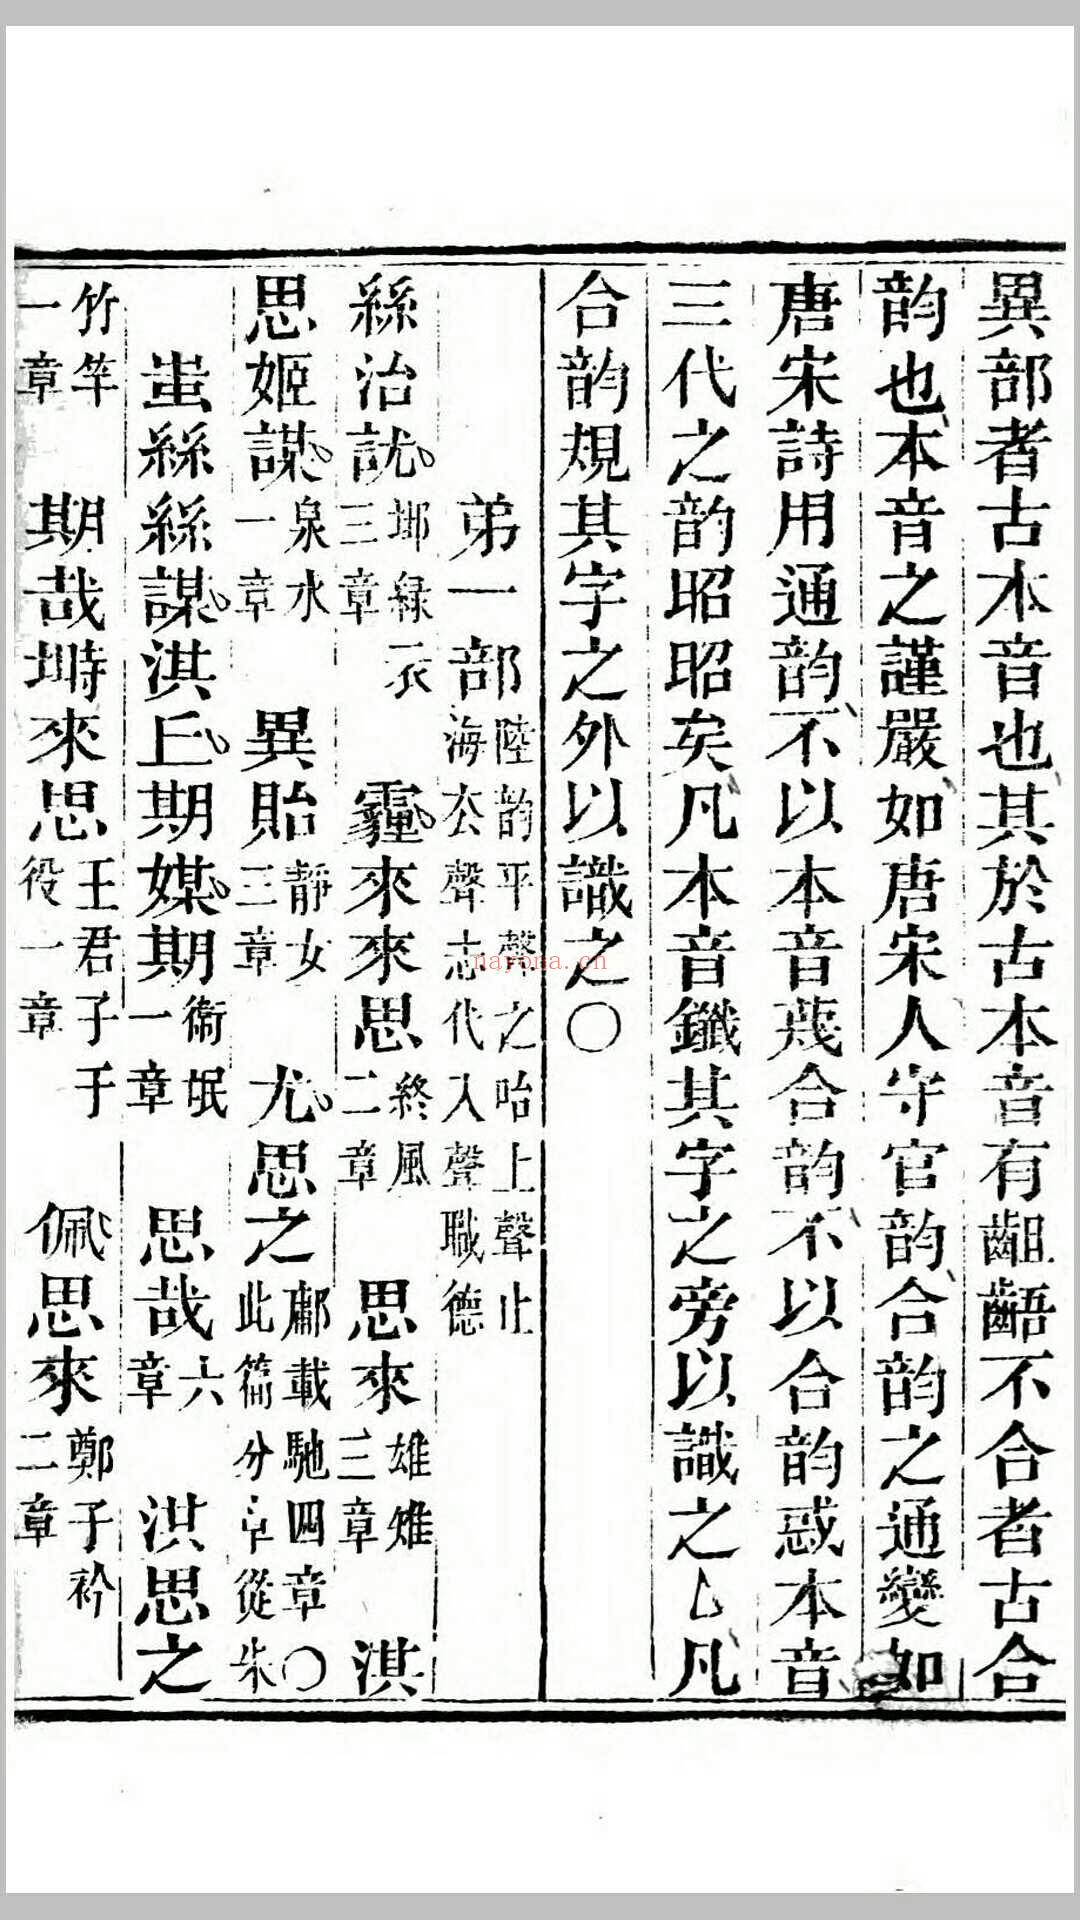 異部者古本音也其於古本音有齟齬不合者古合
韵也本音之謹嚴如唐宋人守官韵合韵之通變如
唐宋詩用通韵不以本音蔑合韵不以合韵惑本音
三代之韵昭昭矣凡本音鐵其字之旁以識之乚凡
合韵規其字之外以識之〇
弟一部
陸韵平聲之咍上聲止
海去聲志代入聲職德
絲治訧邶綠衣三章 霾來來思終風二章 思來雄雉三章 淇
思姬謀泉水一章 異貽靜女三章 尤思之鄘載馳四章〇此篇分章從朱
蚩絲絲謀淇丘期媒期衞氓一章 思哉六章 淇思之
竹竿一章 期哉塒來思王君子于役一章 佩思來鄭子衿二章
nayona.cn